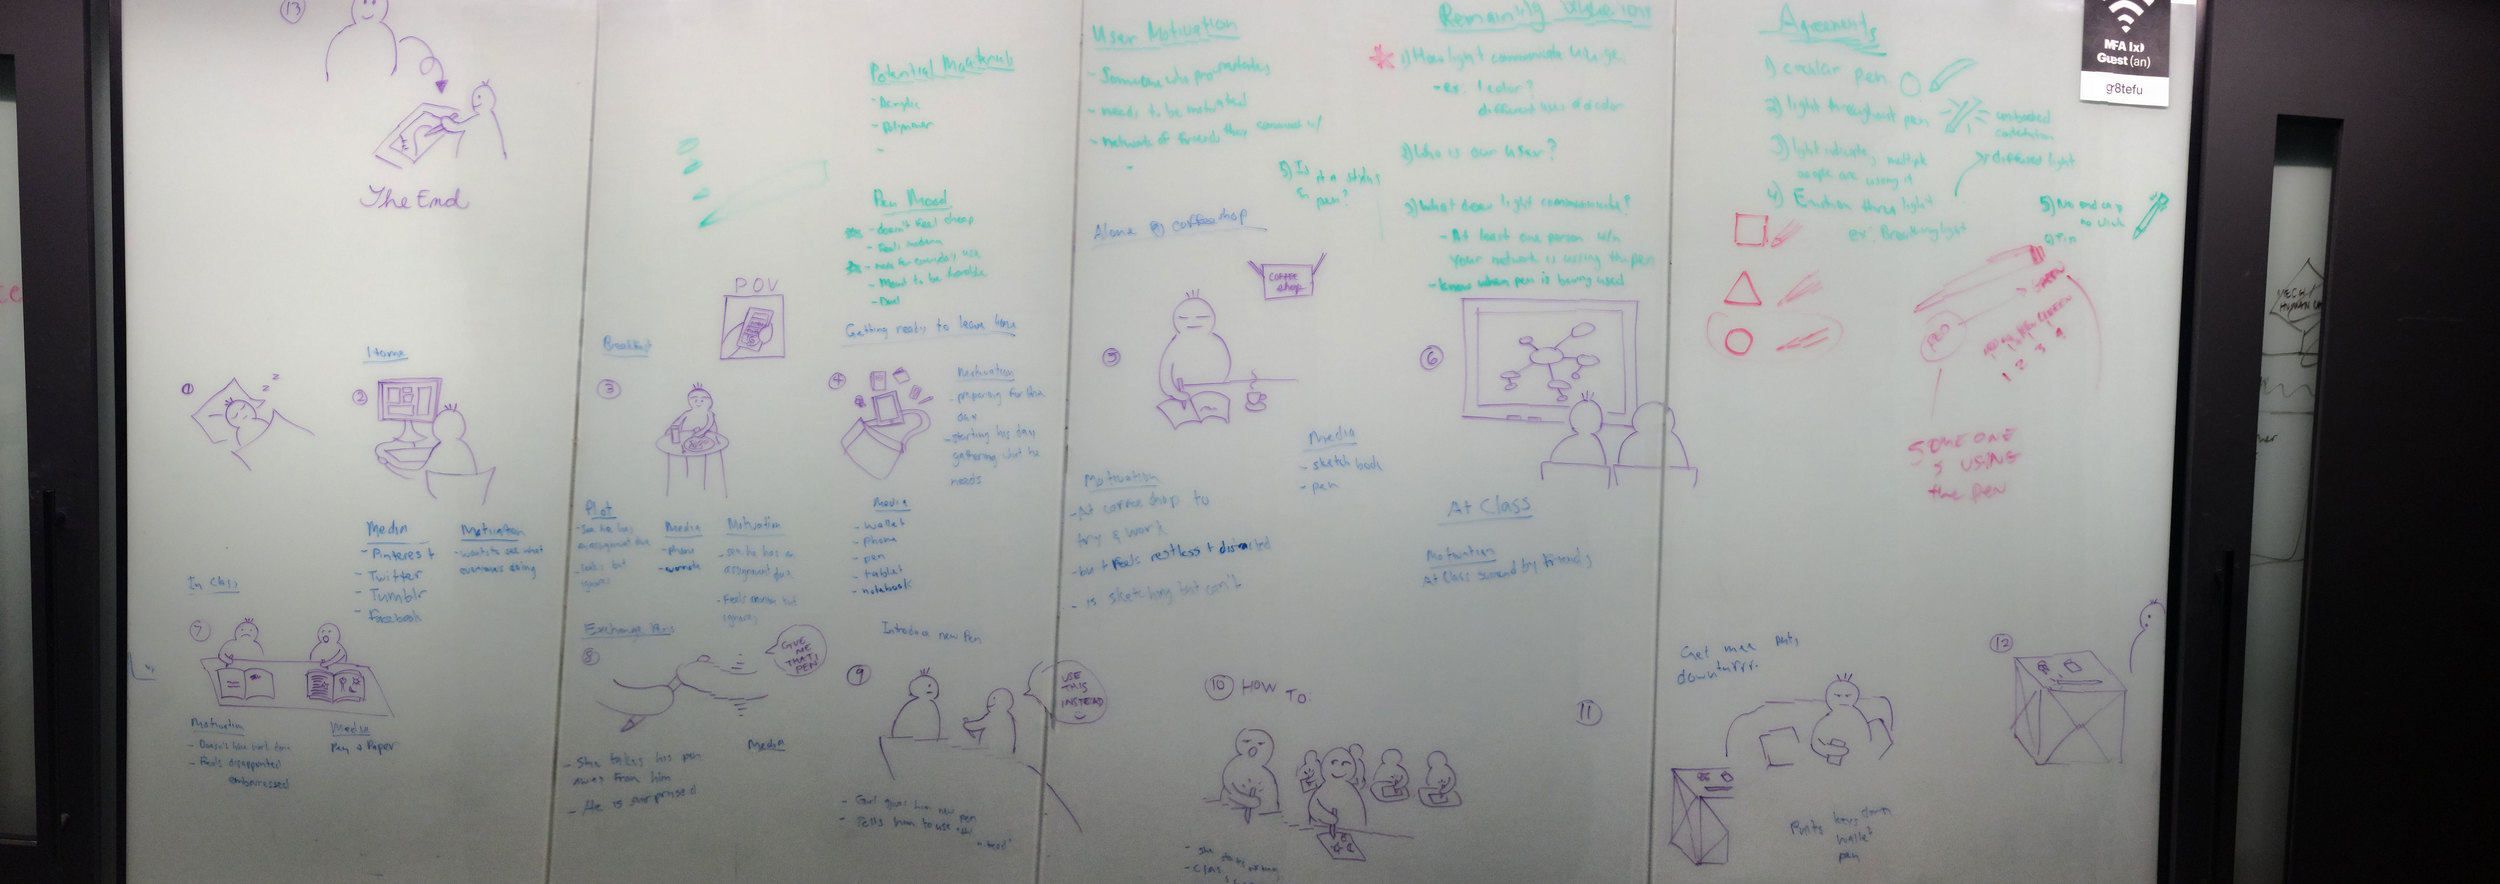 13
The End
Potential Materials
- Acrylic
- Polymer
-
Pen Mood
- doesn't feel cheap
- Feels modern
- made for everyday use
- Meant to be durable
- Dual
User Motivation
- Someone who procrastinates
- needs to be motivated
- Network of friends they connect w/
-
Remaining
1) How light communicate usage
- ex. 1 color?
different uses of color
2) Who is our user?
3) What does light communicate?
- At least one person w/in
your network is using the pen
- know when pen is being used
5) Is it a stylus
or pen?
Agreements
1) circular pen
2) light throughout pen
3) light indicates multiple
people are using it
diffused light
4) Emotion thru light
ex: Breathing light
5) No end cap
no click
MFA IxD
Guest (an)
g8tefu
1 2 3 4
SOMEONE
IS USING
the pen
1
z z z
Home
2
Media
- Pinterest
- Twitter
- Tumblr
- Facebook
Motivation
- wants to see what
everyone's doing
Breakfast
POV
3
Plot
- See he has
assignment due
- looks but
ignores
Media
- phone
- evernote
Motivation
- see he has an
assignment due
- Feels anxious but
ignores
Getting ready to leave home
4
Motivation
- preparing for the
day
- starting his day
gathering what he
needs
Media
- wallet
- phone
- pen
- tablet
- notebook
Alone @ coffee shop
COFFEE
shop
5
Motivation
- At coffee shop to
try & work
- but feels restless + distracted
- is sketching but can't
Media
- sketch book
- pen
6
At Class
Motivation
At Class surround by friends
In Class
7
Motivation
- Doesn't have work done
- Feels disappointed
embarrassed
Media
Pen & Paper
Exchange Pens
8
GIVE
ME
THAT
PEN
Media
- She takes his pen
away from him
- He is surprised
Introduce new Pen
9
USE
THIS
INSTEAD
- Girl gives him new pen
- Tells him to use
10 HOW TO
- she starts
- Class
11
Get
Puts keys down
wallet
pen
12